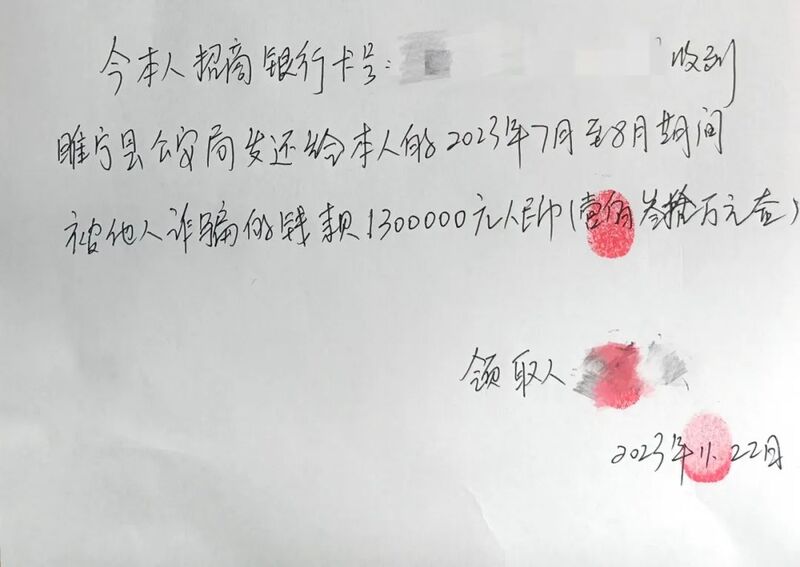 今本人招商银行卡号: 收到
睢宁县公安局发还给本人的2023年7月至8月期间
被他人诈骗的钱款1300000元人民币(壹佰叁拾万元

领取人:
2023年11.22日